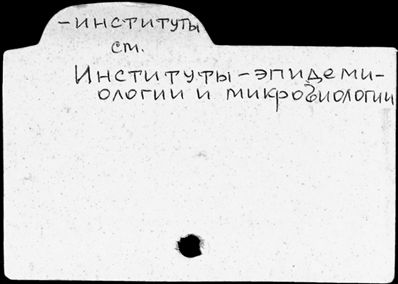 -институты
см.
Институты-эпидеми-
ологии и микробиологии